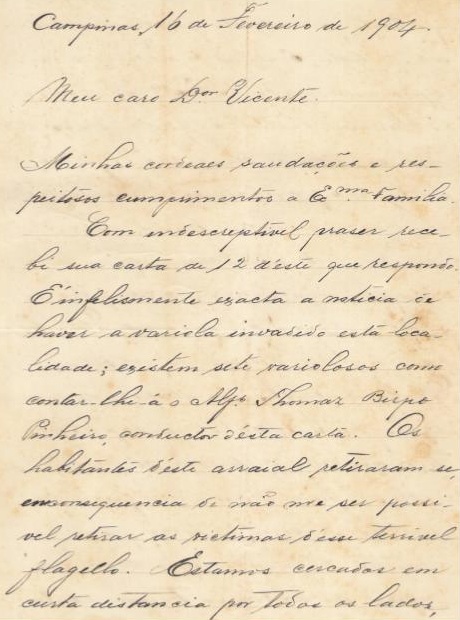 Campinas, 16 de Fevereiro de 1904.
Meu caro Dor. Vicente.
Minhas cordeaes saudações e res-
peitosos cumprimentos a Exma. Familia.
Com indescreptivel praser rece-
bi sua carta de 12 d'este que respondo.
É infelismente exacta a noticia de
haver a variola invadido esta loca-
lidade; existem sete variolosos como
contar-lhe-á o Alfs. Thomaz Bispo
Pinheiro, conductor d'ésta carta. Os
habitantes d'éste arraial retiraram se,
em consequencia de não me ser possi-
vel retirar as victimas d'esse terrivel
flagello. Estamos cercados em
curta distancia por todos os lados,